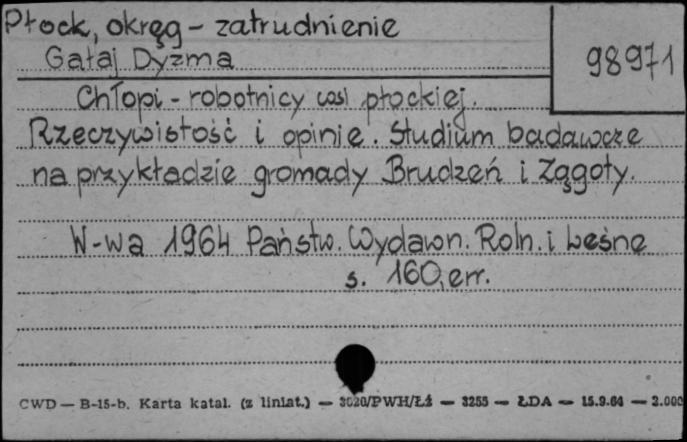 Płock, okręg - zatrudnienie
Gałaj Dyzma
98971
Chłopi - robotnicy wsi płockiej.
Rzeczywistość i opinie. Studium badawcze
na przykładzie gromady Brudzeń i Zągoty.
W-wa 1964 Państw. Wydawn. Roln. i Leśne
s. 160, err.
CWD — B-15-b. Karta katal. (z liniat.) — 3020/PWH/Łź — 3255 — ŁDA — 15.9.64 — 2.000